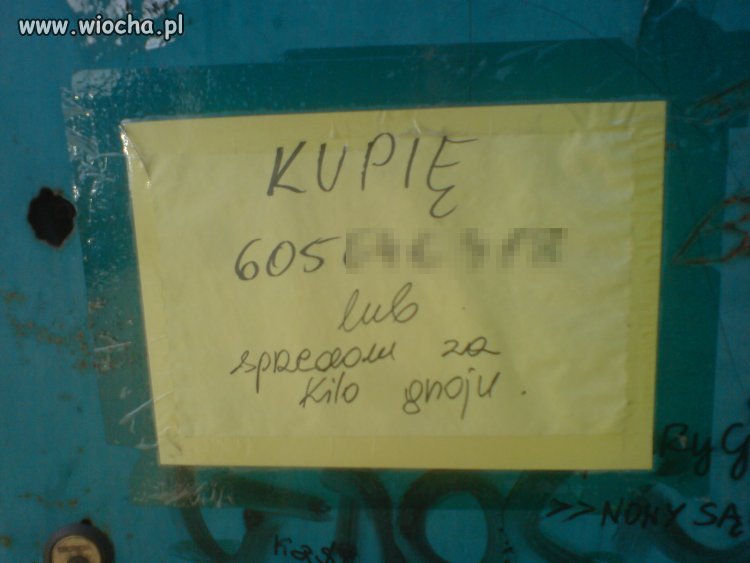 www.wiocha.pl
KUPIĘ
605
lub
sprzedam za
kilo gnoju.
RyG
>>NOWY SĄ